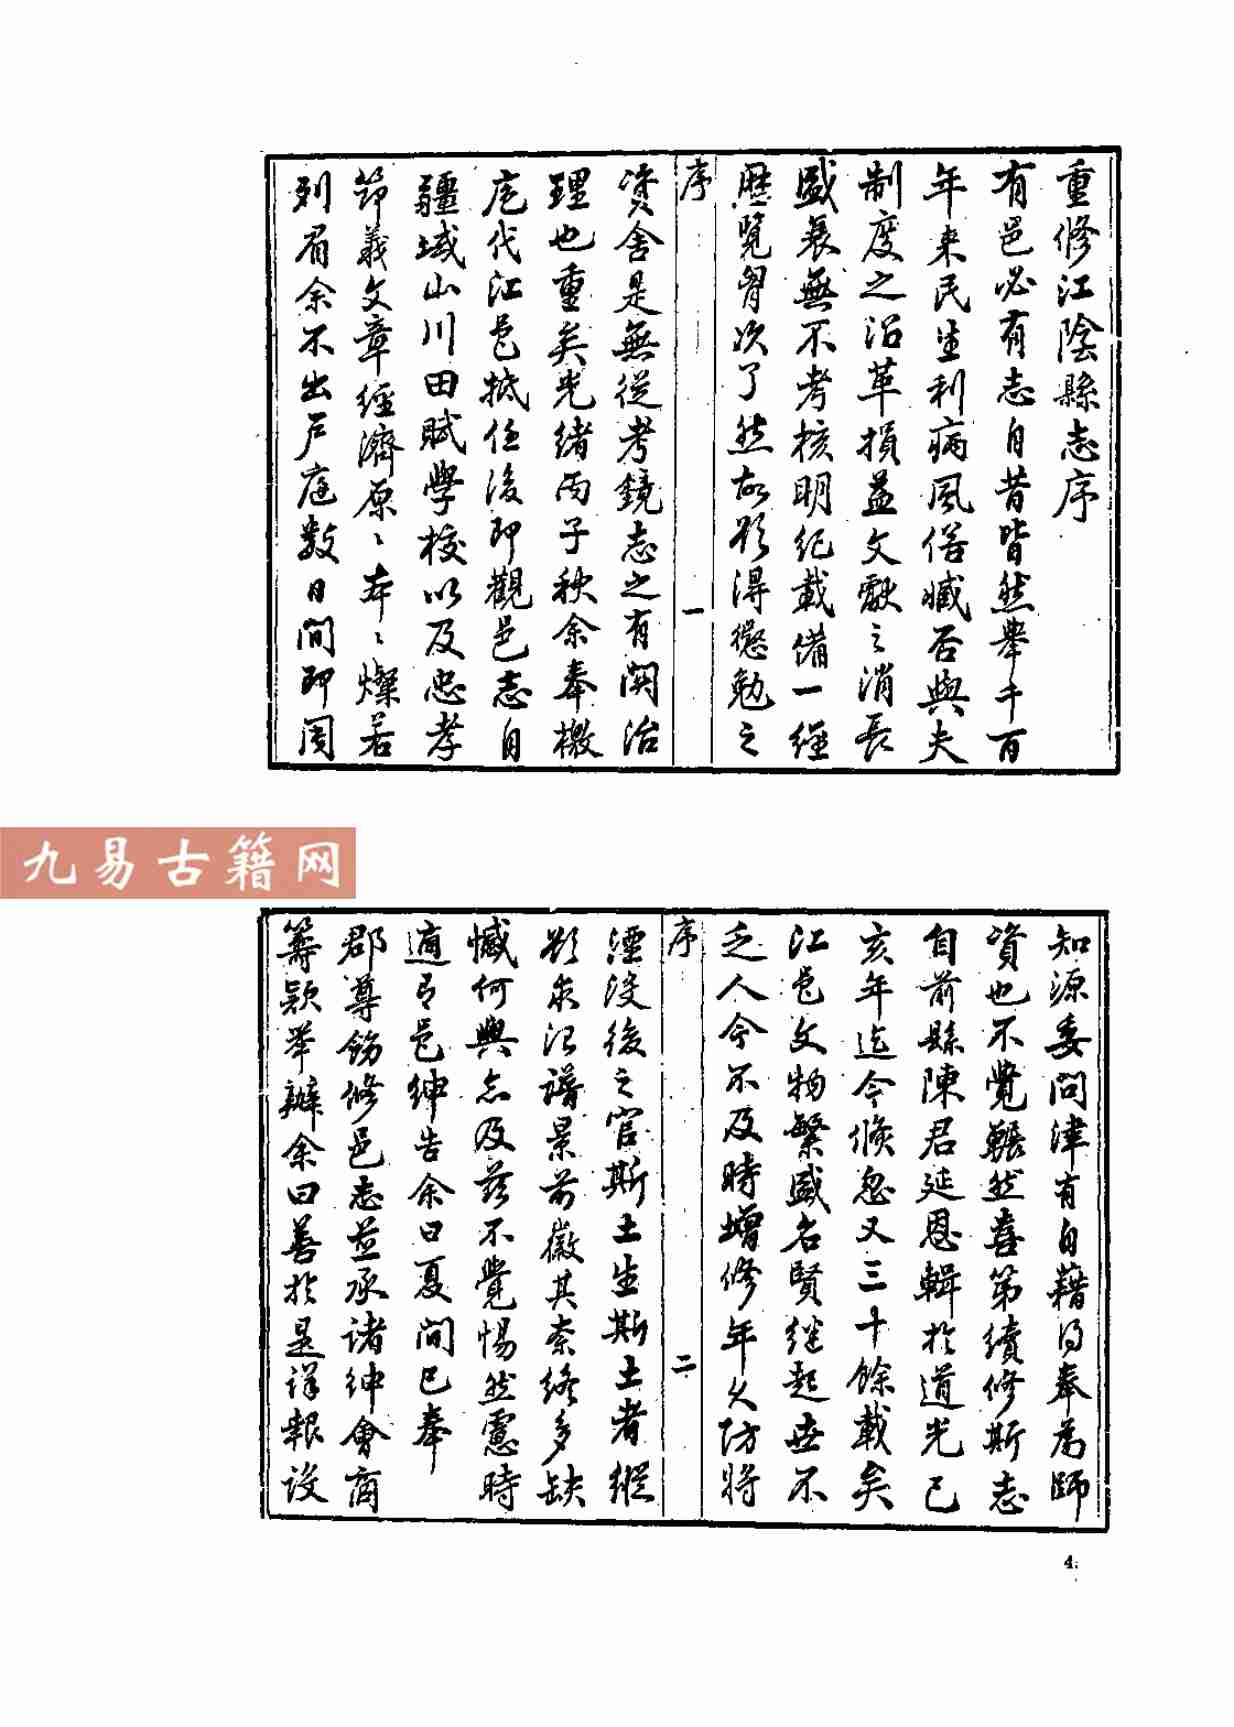 重修江陰縣志序
有邑必有志自昔皆然舉千百
年来民生利病風俗臧否與夫
制度之沿革損益文獻之消長
盛衰無不考核明紀載備一經
歷覽胷次了然故欲得懲勉之
序
一
資舍是無從考鏡志之有関治
理也重矣光緒丙子秋余奉檄
庀代江邑抵任後即觀邑志自
疆域山川田賦學校以及忠孝
節義文章經濟原〻本〻燦若
列眉余不出戶庭數日間即周
九易古籍网
知源委問津有自藉得奉为師
資也不覺囅然喜第續修斯志
自前縣陳君延恩輯於道光己
亥年迄今倏忽又三十餘載矣
江邑文物繁盛名賢継起世不
乏人今不及時增修年久防將
序
二
湮没後之官斯土生斯土者縱
欲求治譜景前徽其奈終多缺
憾何興念及茲不覺惕然憲時
適有邑紳告余曰夏間已奉
郡尊飭修邑志並承諸紳會商
籌欵举辦余曰善於是詳報设
4